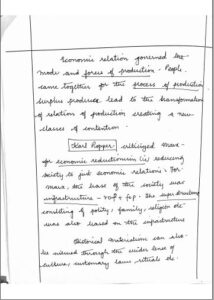 Economic relation governed by
mode and forces of production. People
came together for the process of production
surplus produce lead to the transformation
of relation of production creating a new
classes of contention.
Karl Popper criticized Marx
for economic reductionism (ie) reducing
society to just economic relations. For
Marx, the base of the society was
infrastructure - rop + fop. The superstructure
consisting of polity, family, religion etc
was also based on the infrastructure
Historical materialism can also
be viewed through the wider lens of
culture, customary laws, rituals etc.